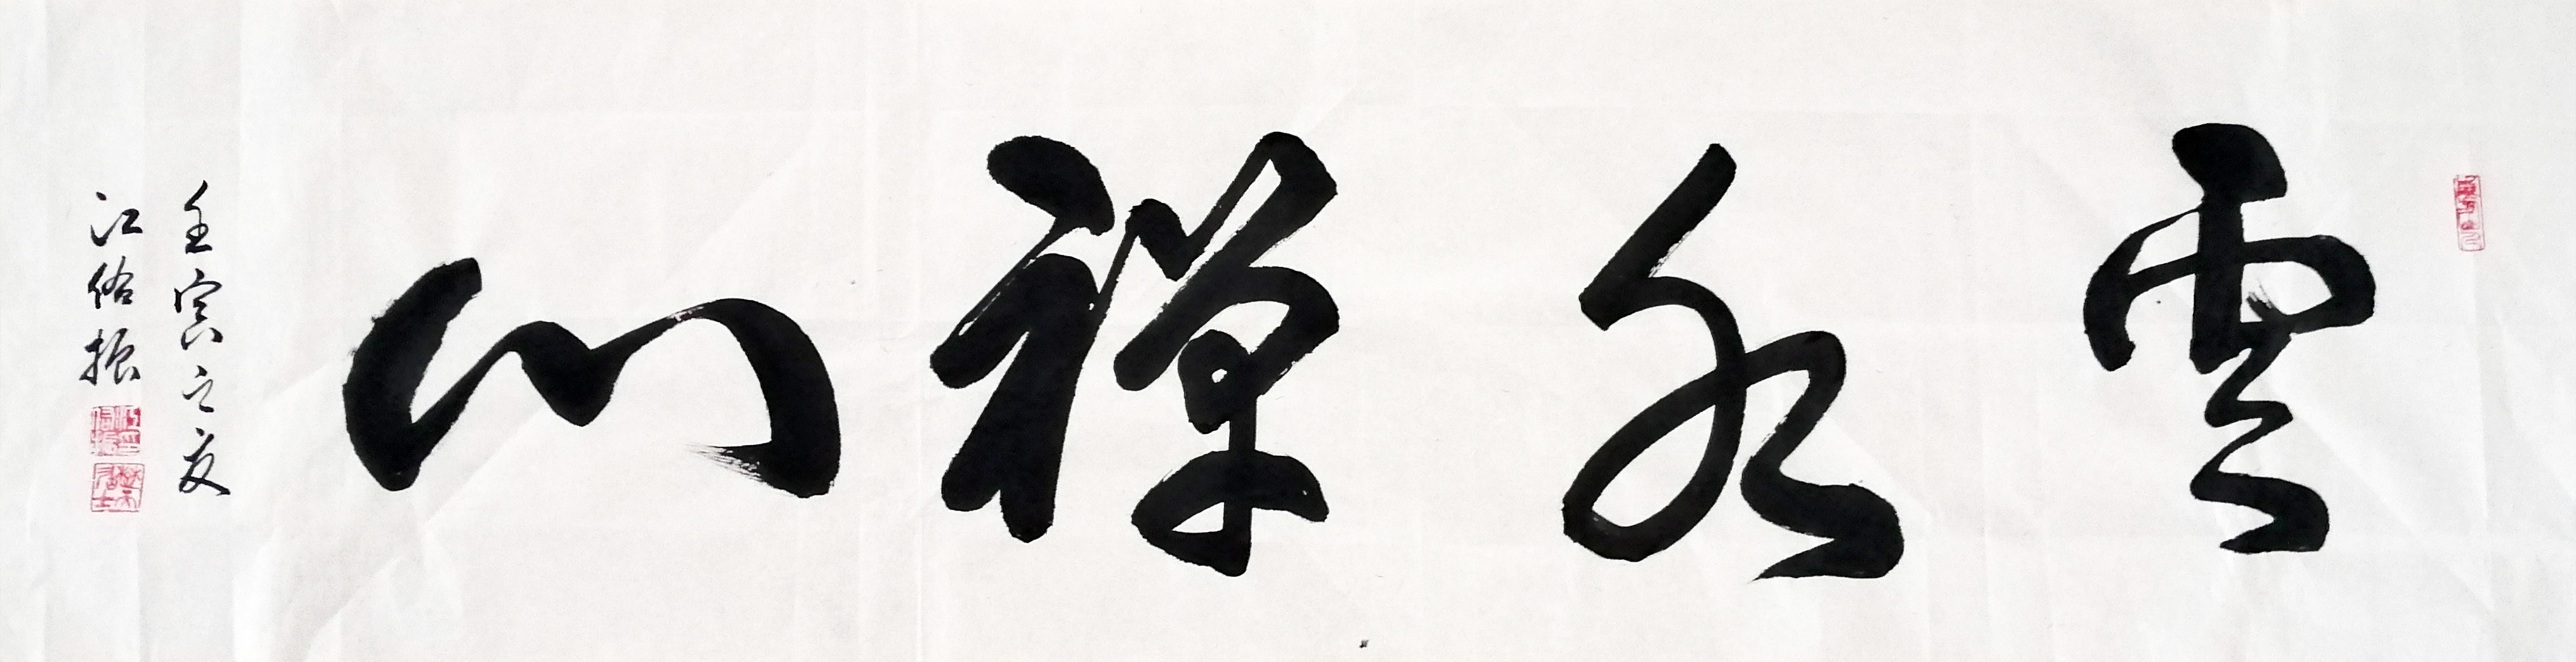 雲水禅心
壬寅之夏
江俗振